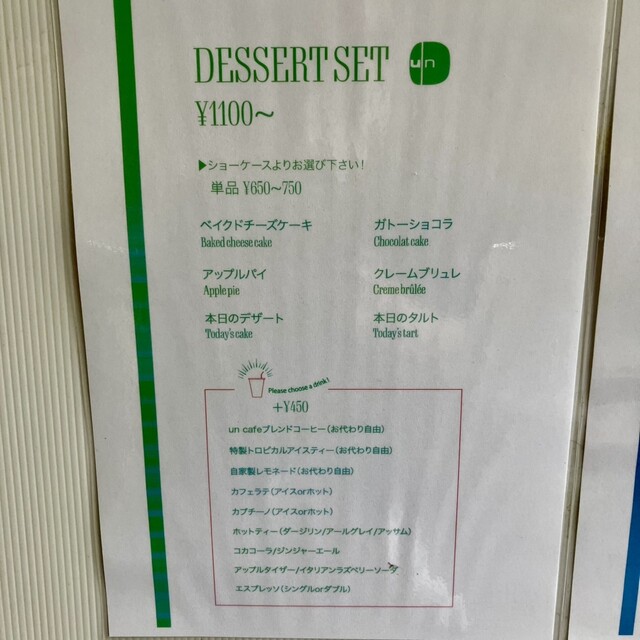 DESSERT SET
un
¥1100～
▶ショーケースよりお選び下さい！
単品 ¥650～750
ベイクドチーズケーキ
Baked cheese cake
ガトーショコラ
Chocolat cake
アップルパイ
Apple pie
クレームブリュレ
Creme brûlée
本日のデザート
Today's cake
本日のタルト
Today's tart
Please choose a drink!
+¥450
un cafeブレンドコーヒー（お代わり自由）
特製トロピカルアイスティー（お代わり自由）
自家製レモネード（お代わり自由）
カフェラテ（アイスorホット）
カプチーノ（アイスorホット）
ホットティー（ダージリン/アールグレイ/アッサム）
コカコーラ/ジンジャーエール
アップルタイザー/イタリアンラズベリーソーダ
エスプレッソ（シングルorダブル）